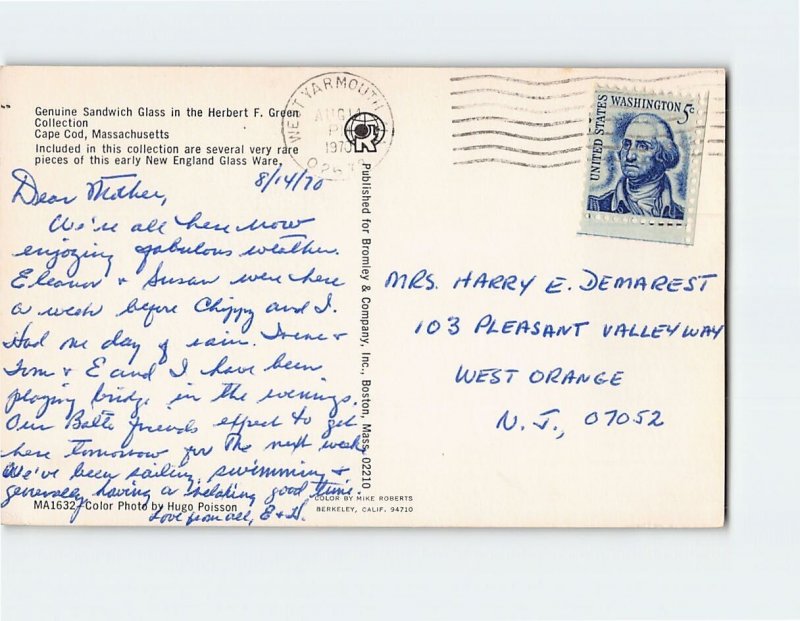 Genuine Sandwich Glass in the Herbert F. Green
Collection
Cape Cod, Massachusetts
Included in this collection are several very rare
pieces of this early New England Glass Ware.
8/14/70
Dear Mother,
We're all here now
enjoying fabulous weather.
Eleanor + Susan were here
a week before Chippy and I.
Had one day of rain. Irene +
Tom + E and I have been
playing bridge in the evenings.
Our Balto friends expect to get
here tomorrow for the next week
We've been sailing, swimming +
generally having a relaxing good time.
Love from all, E + H.
MA1632 Color Photo by Hugo Poisson
Published for Bromley & Company, Inc., Boston, Mass. 02210
COLOR BY MIKE ROBERTS
BERKELEY, CALIF. 94710
WEST YARMOUTH
AUG 14
P
1970
UNITED STATES
WASHINGTON 5c
MRS. HARRY E. DEMAREST
103 PLEASANT VALLEY WAY
WEST ORANGE
N.J., 07052